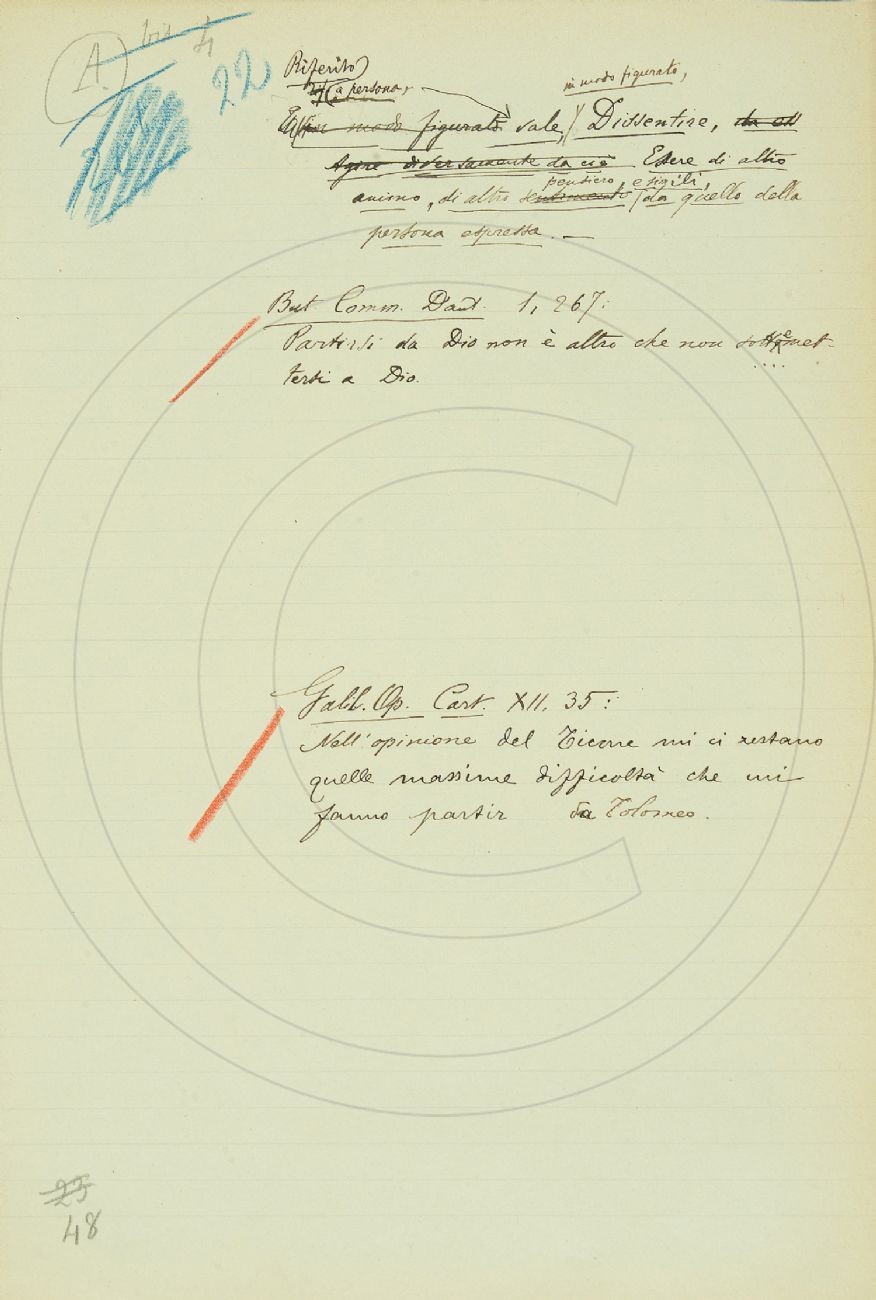 A
bis
4
22
Riferito
a persona,
in modo figurato,
in modo figurato vale, Dissentire, da ess
Agire diversamente da ciò Essere di altro
pensiero, e simili,
animo, di altro sentimento da quello della
persona espressa. —
But. Comm. Dant. 1, 267:
Partirsi da Dio non è altro che non sottomet-
tersi a Dio.
Galil. Op. Cart. XII. 35:
Nell'opinione del Ticone mi ci restano
quelle massime difficoltà che mi
fanno partir da Tolomeo.
25
48